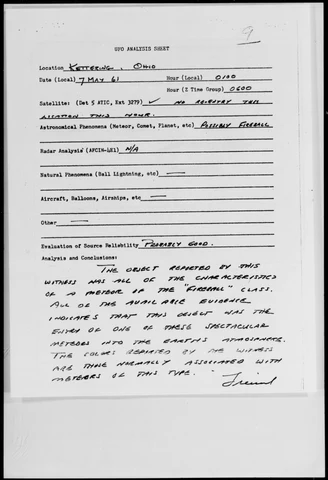 9
UFO ANALYSIS SHEET
Location KETTERING, OHIO
Date (Local) 7 MAY 61 Hour (Local) 0100
Hour (Z Time Group) 0600
Satellite: (Det 5 ATIC, Ext 3279) ✓ NO REENTRY THIS
LOCATION THIS HOUR.
Astronomical Phenomena (Meteor, Comet, Planet, etc) POSSIBLY FIREBALL
Radar Analysis (AFCIN-4E1) N/A
Natural Phenomena (Ball Lightning, etc) —
Aircraft, Balloons, Airships, etc —
Other —
Evaluation of Source Reliability PROBABLY GOOD.
Analysis and Conclusions:
THE OBJECT REPORTED BY THIS
WITNESS HAS ALL OF THE CHARACTERISTICS
OF A METEOR OF THE "FIREBALL" CLASS.
ALL OF THE AVAILABLE EVIDENCE
INDICATES THAT THIS OBJECT WAS THE
ENTRY OF ONE OF THESE SPECTACULAR
METEORS INTO THE EARTHS ATMOSPHERE.
THE COLORS REPORTED BY THE WITNESS
ARE THOSE NORMALLY ASSOCIATED WITH
METEORS OF THIS TYPE.